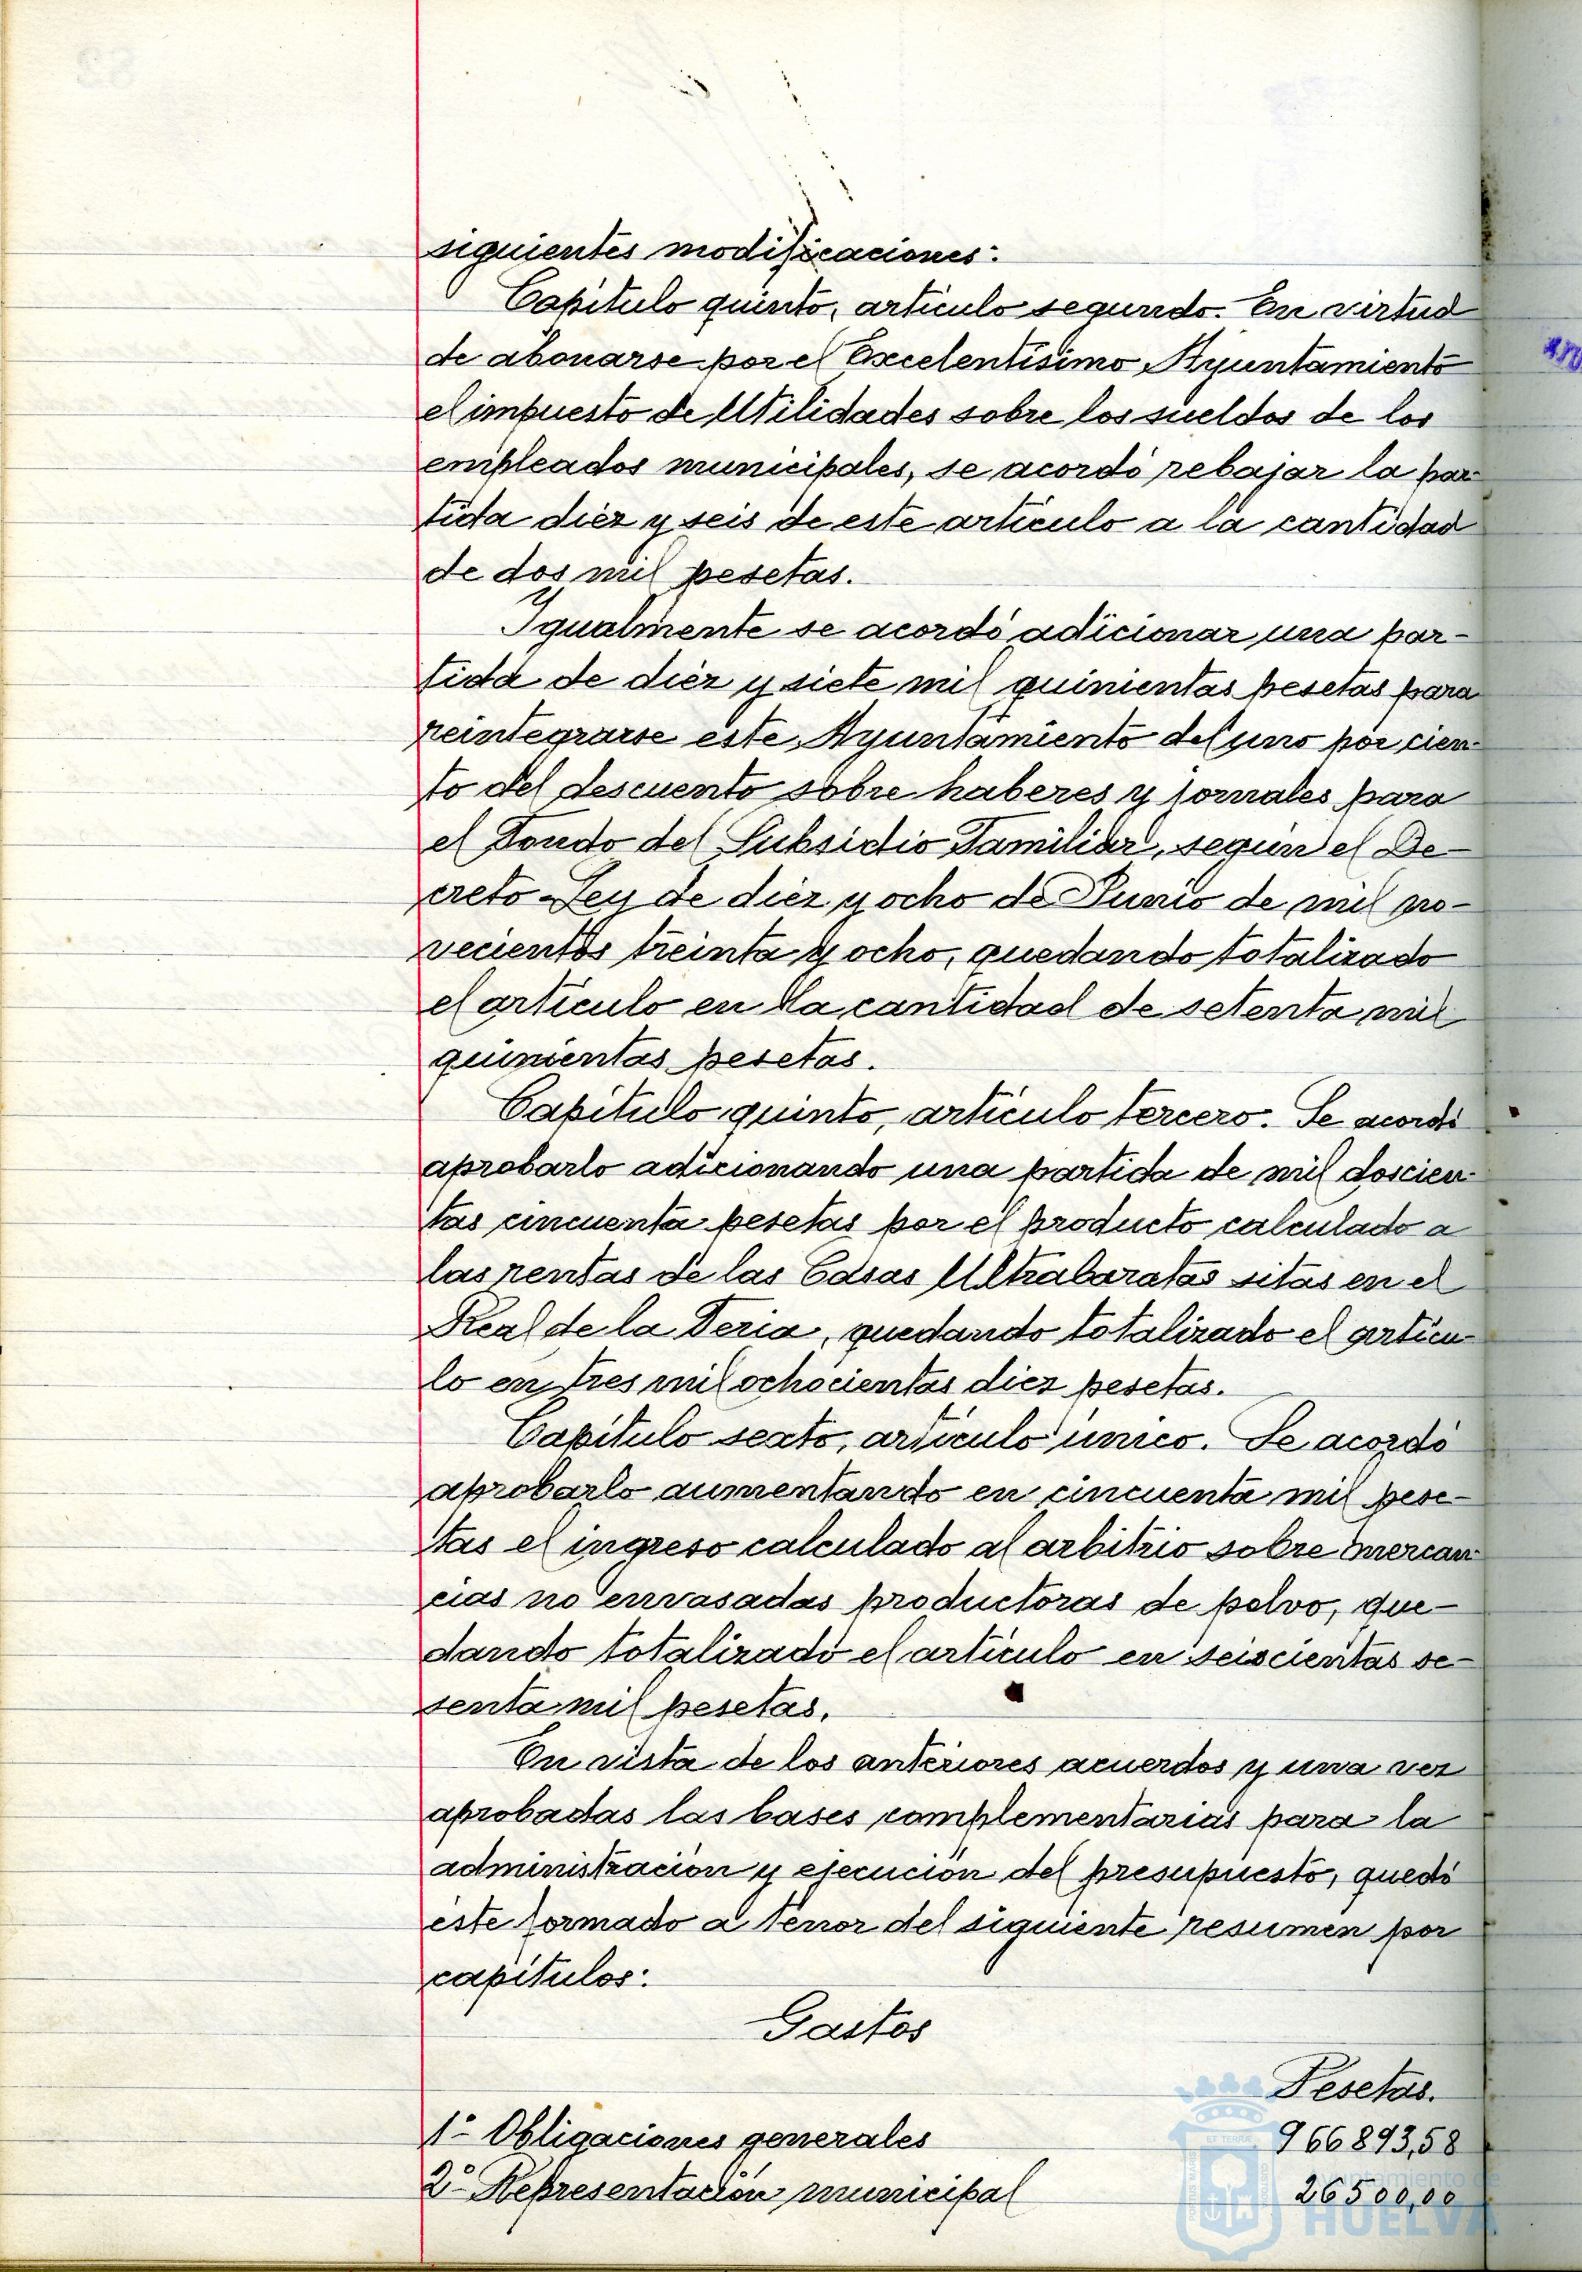 siguientes modificaciones:
Capítulo quinto, artículo segundo. En virtud
de abonarse por el Excelentísimo Ayuntamiento
el impuesto de Utilidades sobre los sueldos de los
empleados municipales, se acordó rebajar la par-
tida diez y seis de este artículo a la cantidad
de dos mil pesetas.
Igualmente se acordó adicionar una par-
tida de diez y siete mil quinientas pesetas para
reintegrarse este Ayuntamiento del uno por cien-
to del descuento sobre haberes y jornales para
el Fondo del Subsidio Familiar, según el De-
creto-Ley de diez y ocho de Junio de mil no-
vecientos treinta y ocho, quedando totalizado
el artículo en la cantidad de setenta mil
quinientas pesetas.
Capítulo quinto, artículo tercero. Se acordó
aprobarlo adicionando una partida de mil doscien-
tas cincuenta pesetas por el producto calculado a
las rentas de las Casas Ultrabaratas sitas en el
Real de la Feria, quedando totalizado el artícu-
lo en tres mil ochocientas diez pesetas.
Capítulo sexto, artículo único. Se acordó
aprobarlo aumentando en cincuenta mil pese-
tas el ingreso calculado al arbitrio sobre mercan-
cias no envasadas productoras de polvo, que-
dando totalizado el artículo en seiscientas se-
senta mil pesetas.
En vista de los anteriores acuerdos y una vez
aprobadas las bases complementarias para la
administración y ejecución del presupuesto, quedó
este formado a tenor del siguiente resumen por
capítulos:
Gastos
Pesetas.
1º- Obligaciones generales 966893,58
2º- Representación municipal 26500,00
Ayuntamiento de
HUELVA